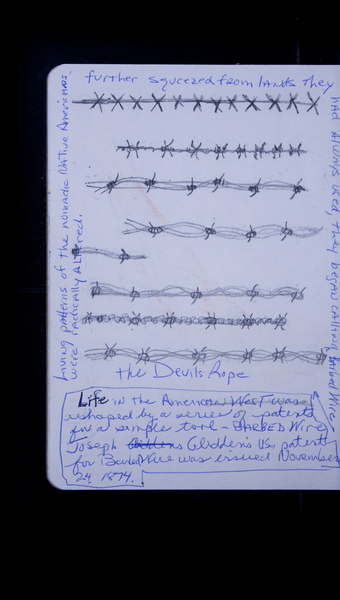 Life in the American West was
reshaped by a series of patents
for a simple tool - BARBED Wire
Joseph Gliddens U.S. patent
for Barbed Wire was issued November
24, 1874.
Living patterns of the nomadic Native Americans
were radically ALtered.
further squeezed from lands they
had always used, they began calling barbed wire
the Devils Rope